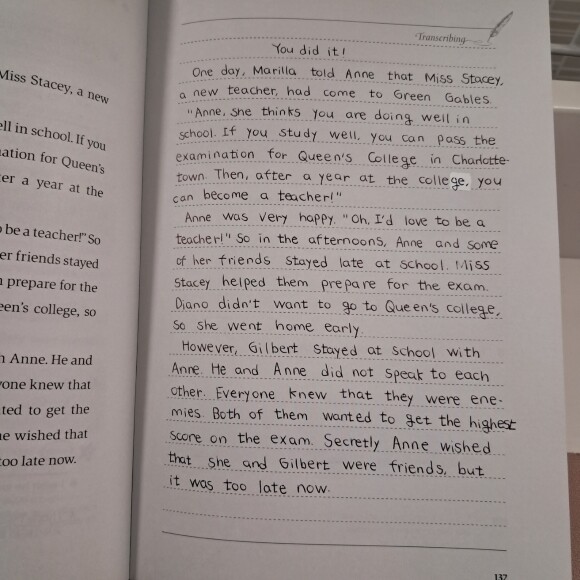 Miss Stacey, a new
ell in school. If you
nation for Queen's
ter a year at the
o be a teacher!" So
er friends stayed
prepare for the
een's college, so
h Anne. He and
yone knew that
ted to get the
he wished that
too late now.
Transcribing
You did it!
One day, Marilla told Anne that Miss Stacey,
a new teacher, had come to Green Gables.
"Anne, she thinks you are doing well in
school. If you study well, you can pass the
examination for Queen's College in Charlotte-
town. Then, after a year at the college, you
can become a teacher!"
Anne was very happy. "Oh, I'd love to be a
teacher!" So in the afternoons, Anne and some
of her friends stayed late at school. Miss
Stacey helped them prepare for the exam.
Diano didn't want to go to Queen's college,
so she went home early.
However, Gilbert stayed at school with
Anne. He and Anne did not speak to each
other. Everyone knew that they were ene-
mies. Both of them wanted to get the highest
score on the exam. Secretly Anne wished
that she and Gilbert were friends, but
it was too late now.
137